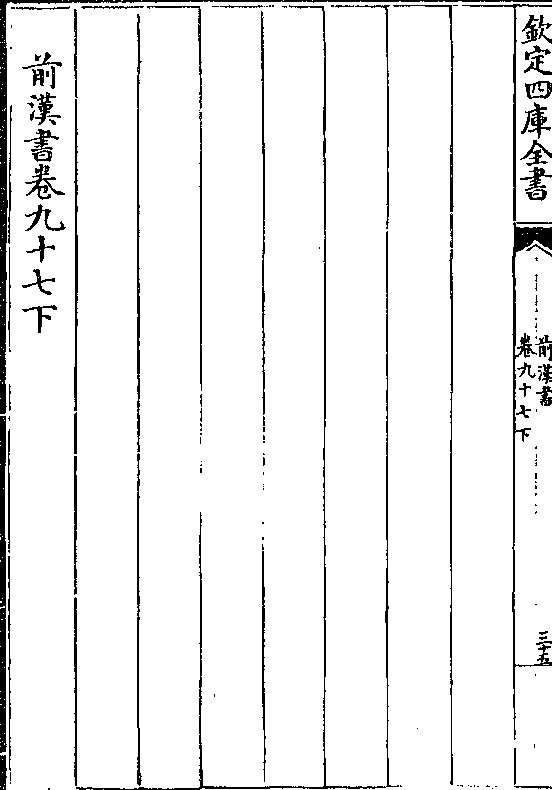 欽定四庫全書
前漢書
卷九十七下
三十五
前漢書卷九十七下